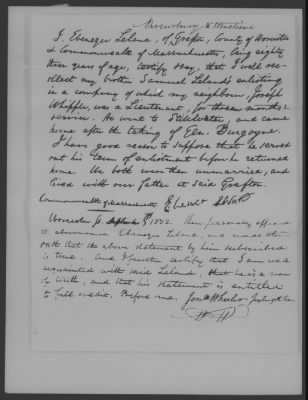 Shrewsbury &
I, Ebenezer Leland, of Grafton, County of Worcester
& Commonwealth of Massachusetts, being eighty
three years of age, certify & say, that I well re-
collect my brother Samuel Leland's enlisting
in a company of which my neighbour, Joseph
Whipple, was a Lieutenant, for three months
service. He went to Stillwater, and came
home after the taking of Gen. Burgoyne.
I have good reason to suppose that he served
out his term of enlistment before he returned
home. We both were then unmarried, and
lived with our father at said Grafton.
Commonwealth of Massachusetts Eben
Worcester ss 1832. Then personally appeared
the abovenamed Ebenezer Leland, and made
oath that the above statement by him subscribed
is true. And I further certify that I am well
acquainted with said Leland, that he is a man
of truth, and that his statement is entitled
to full credit. Before me. Jona Wheeler Justice of the Peace